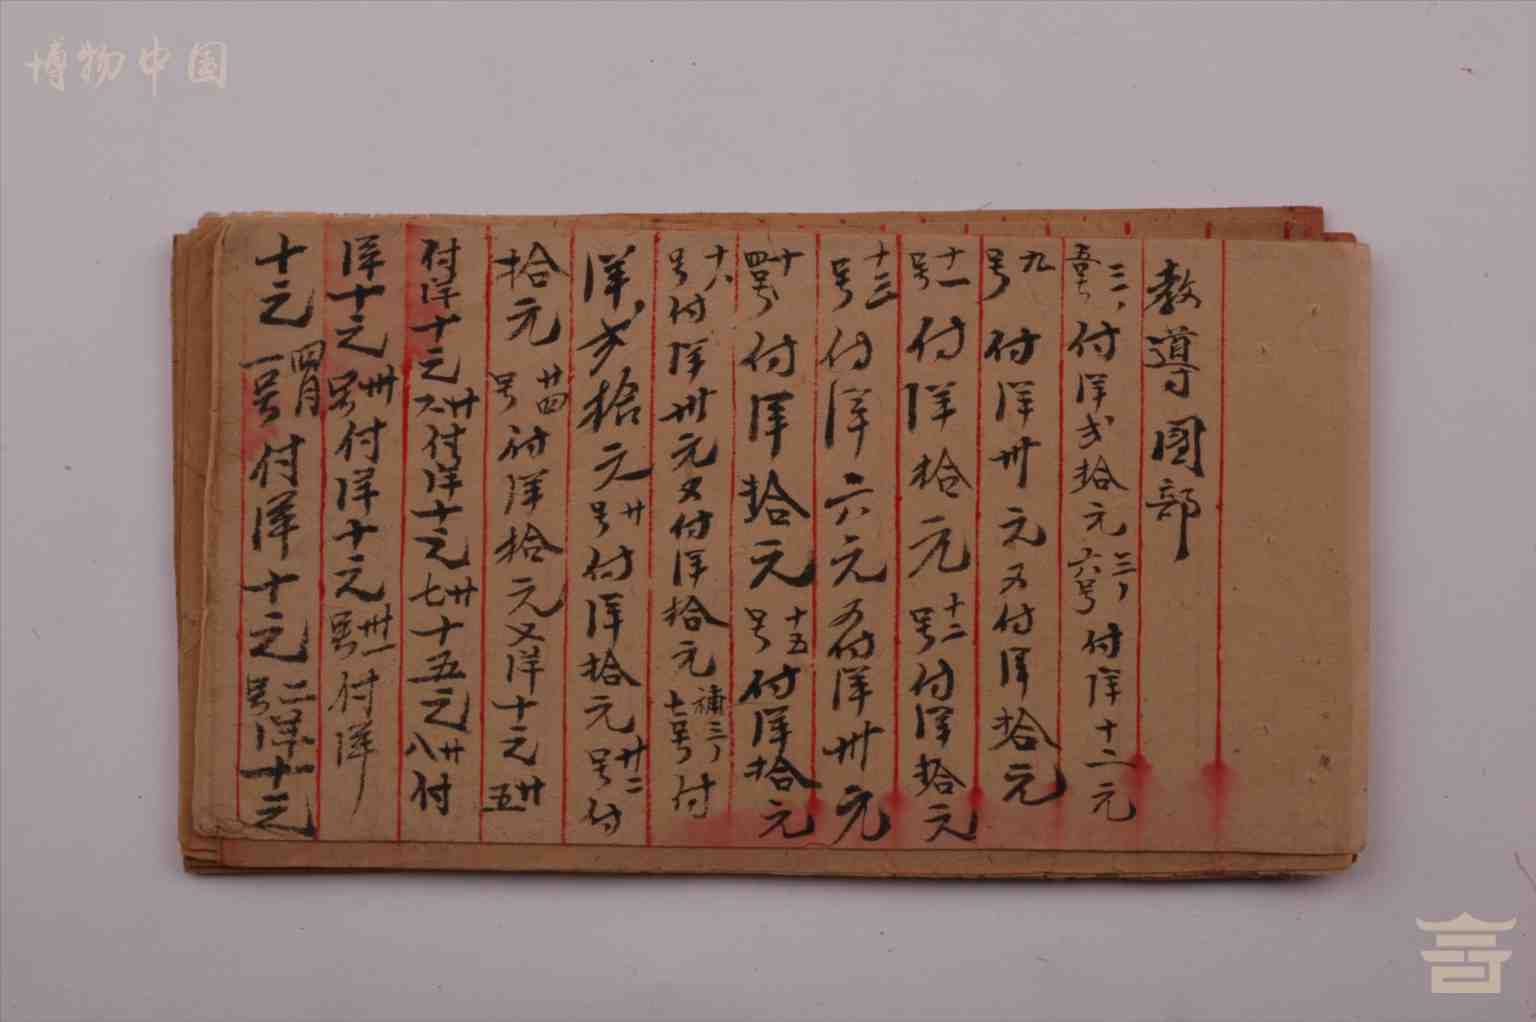 博物中国
教導團部
三、五号付洋弍拾元三、六号付洋十二元
九号付洋卅元又付洋拾元
十一号付洋拾元十二号付洋拾元
十三号付洋六元又付洋卅元
十四号付洋拾元十五号付洋拾元
十六号付洋卅元又付洋拾元補三、七号付
洋弍拾元廿号付洋拾元廿二号付
拾元廿四号付洋拾元又洋十元廿五
付洋十元廿六付洋十元廿七十五元廿八付
洋十元卅号付洋十元卅一号付洋
十元四月一号付洋十元二号洋十元